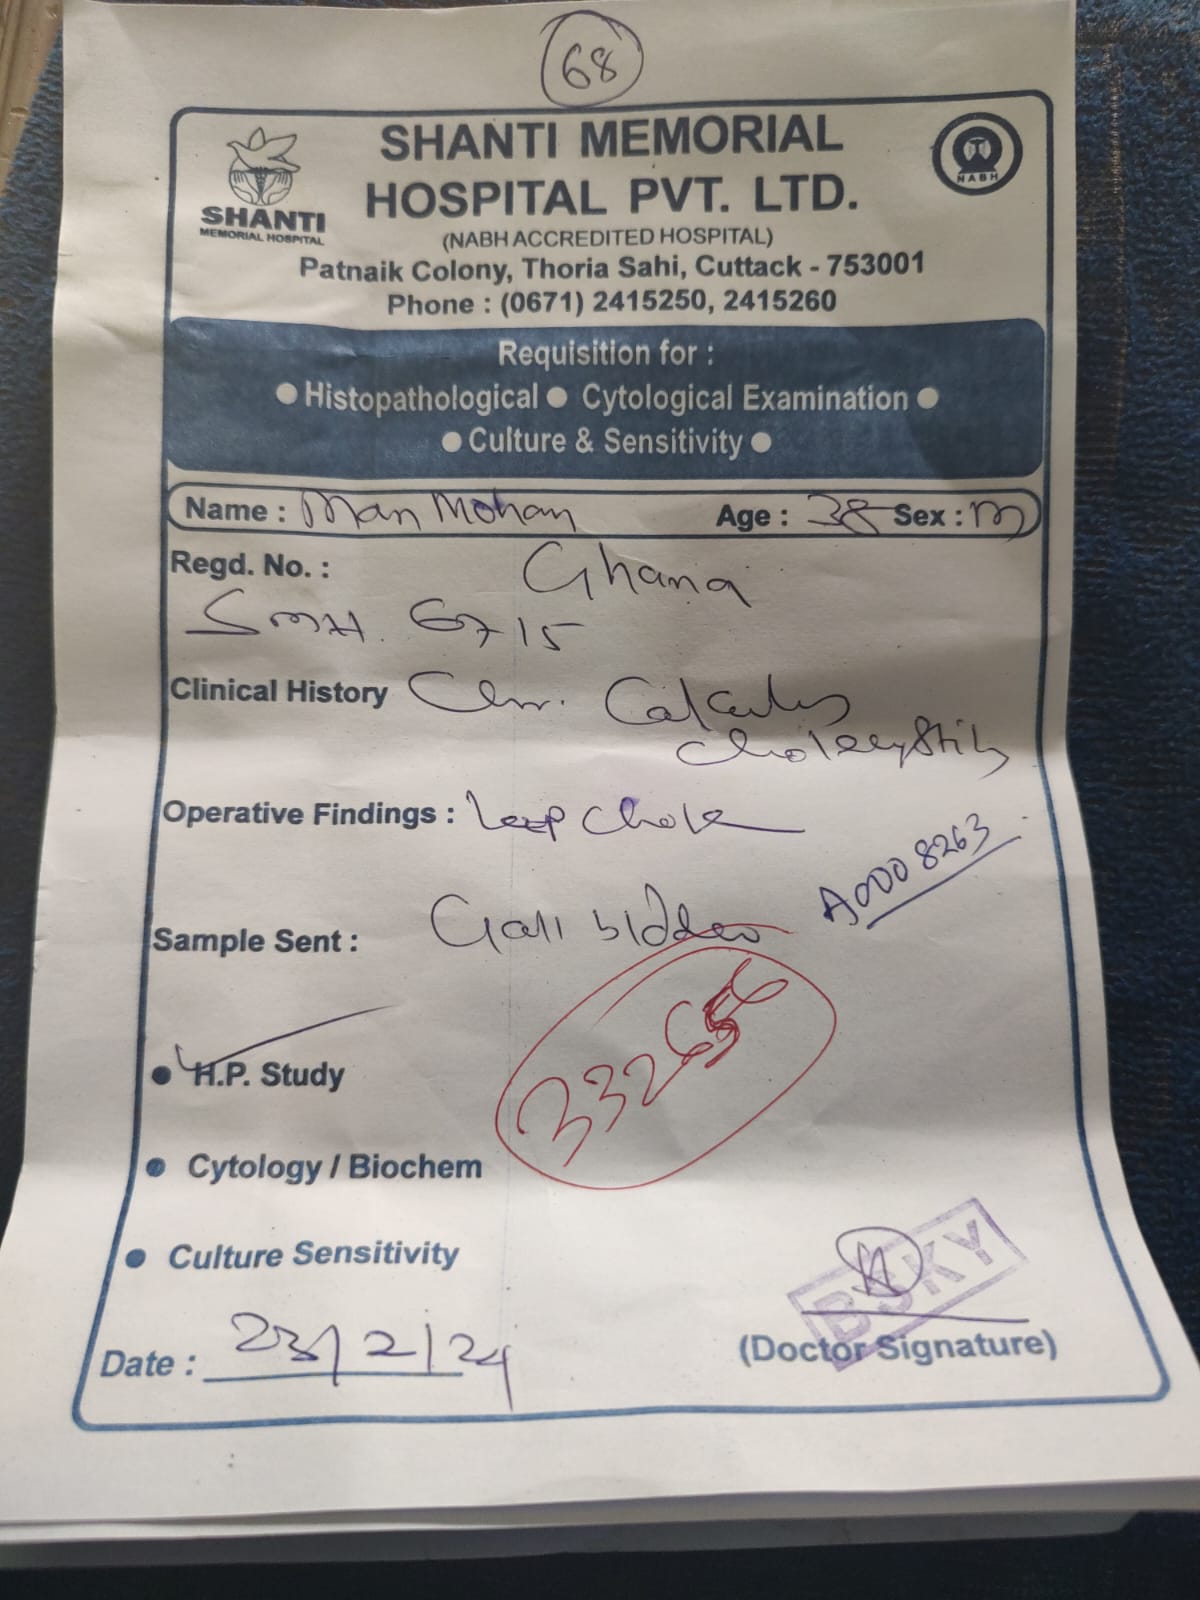 68
SHANTI MEMORIAL
HOSPITAL PVT. LTD.
SHANTI
MEMORIAL HOSPITAL
NABH
(NABH ACCREDITED HOSPITAL)
Patnaik Colony, Thoria Sahi, Cuttack - 753001
Phone : (0671) 2415250, 2415260
Requisition for :
● Histopathological ● Cytological Examination ●
● Culture & Sensitivity ●
Name : Man Mohan Age : 38 Sex : M
Regd. No. : Ghana
SMH. 6715
Clinical History Chr. Calculus
Cholecystitis
Operative Findings : Lap Chole
A0008263
Sample Sent : Gall bladder
332656
● H.P. Study
● Cytology / Biochem
● Culture Sensitivity
BSKY
Date : 23/2/24 (Doctor Signature)